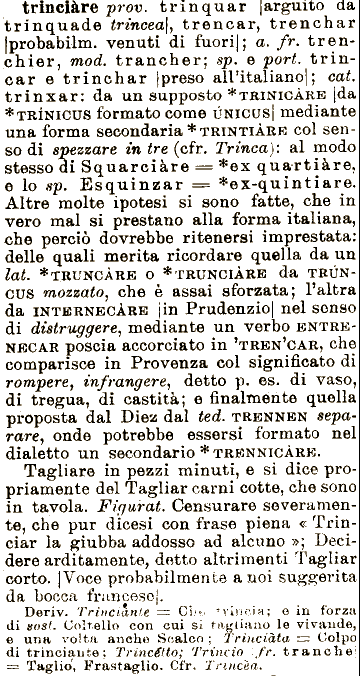 trinciàre prov. trinquar |arguito da
trinquade trincea|, trencar, trenchar
|probabilm. venuti di fuori|; a. fr. tren-
chier, mod. trancher; sp. e port. trin-
car e trinchar |preso all'italiano|; cat.
trinxar: da un supposto *TRINICÀRE |da
*TRÍNICUS formato come ÚNICUS| mediante
una forma secondaria *TRINTIÀRE col sen-
so di spezzare in tre (cfr. Trinca): al modo
stesso di Squarciàre = *ex quartiàre,
e lo sp. Esquinzar = *ex-quintiare.
Altre molte ipotesi si sono fatte, che in
vero mal si prestano alla forma italiana,
che perciò dovrebbe ritenersi imprestata:
delle quali merita ricordare quella da un
lat. *TRUNCÀRE o *TRUNCIÀRE da TRÚN-
CUS mozzato, che è assai sforzata; l'altra
da INTERNECÀRE |in Prudenzio| nel senso
di distruggere, mediante un verbo ENTRE-
NECAR poscia accorciato in 'TREN'CAR, che
comparisce in Provenza col significato di
rompere, infrangere, detto p. es. di vaso,
di tregua, di castità; e finalmente quella
proposta dal Diez dal ted. TRENNEN sepa-
rare, onde potrebbe essersi formato nel
dialetto un secondario *TRENNICÀRE.
Tagliare in pezzi minuti, e si dice pro-
priamente del Tagliar carni cotte, che sono
in tavola. Figurat. Censurare severamen-
te, che pur dicesi con frase piena « Trin-
ciar la giubba addosso ad alcuno »; Deci-
dere arditamente, detto altrimenti Tagliar
corto. |Voce probabilmente a noi suggerita
da bocca francese|.
Deriv. Trinciànte = Che trincia; e in forza
di sost. Coltello con cui si tagliano le vivande,
e una volta anche Scalco; Trinciàta = Colpo
di trinciante; Trincétto; Trincio fr. tranche
= Taglio, Frastaglio. Cfr. Trincèa.